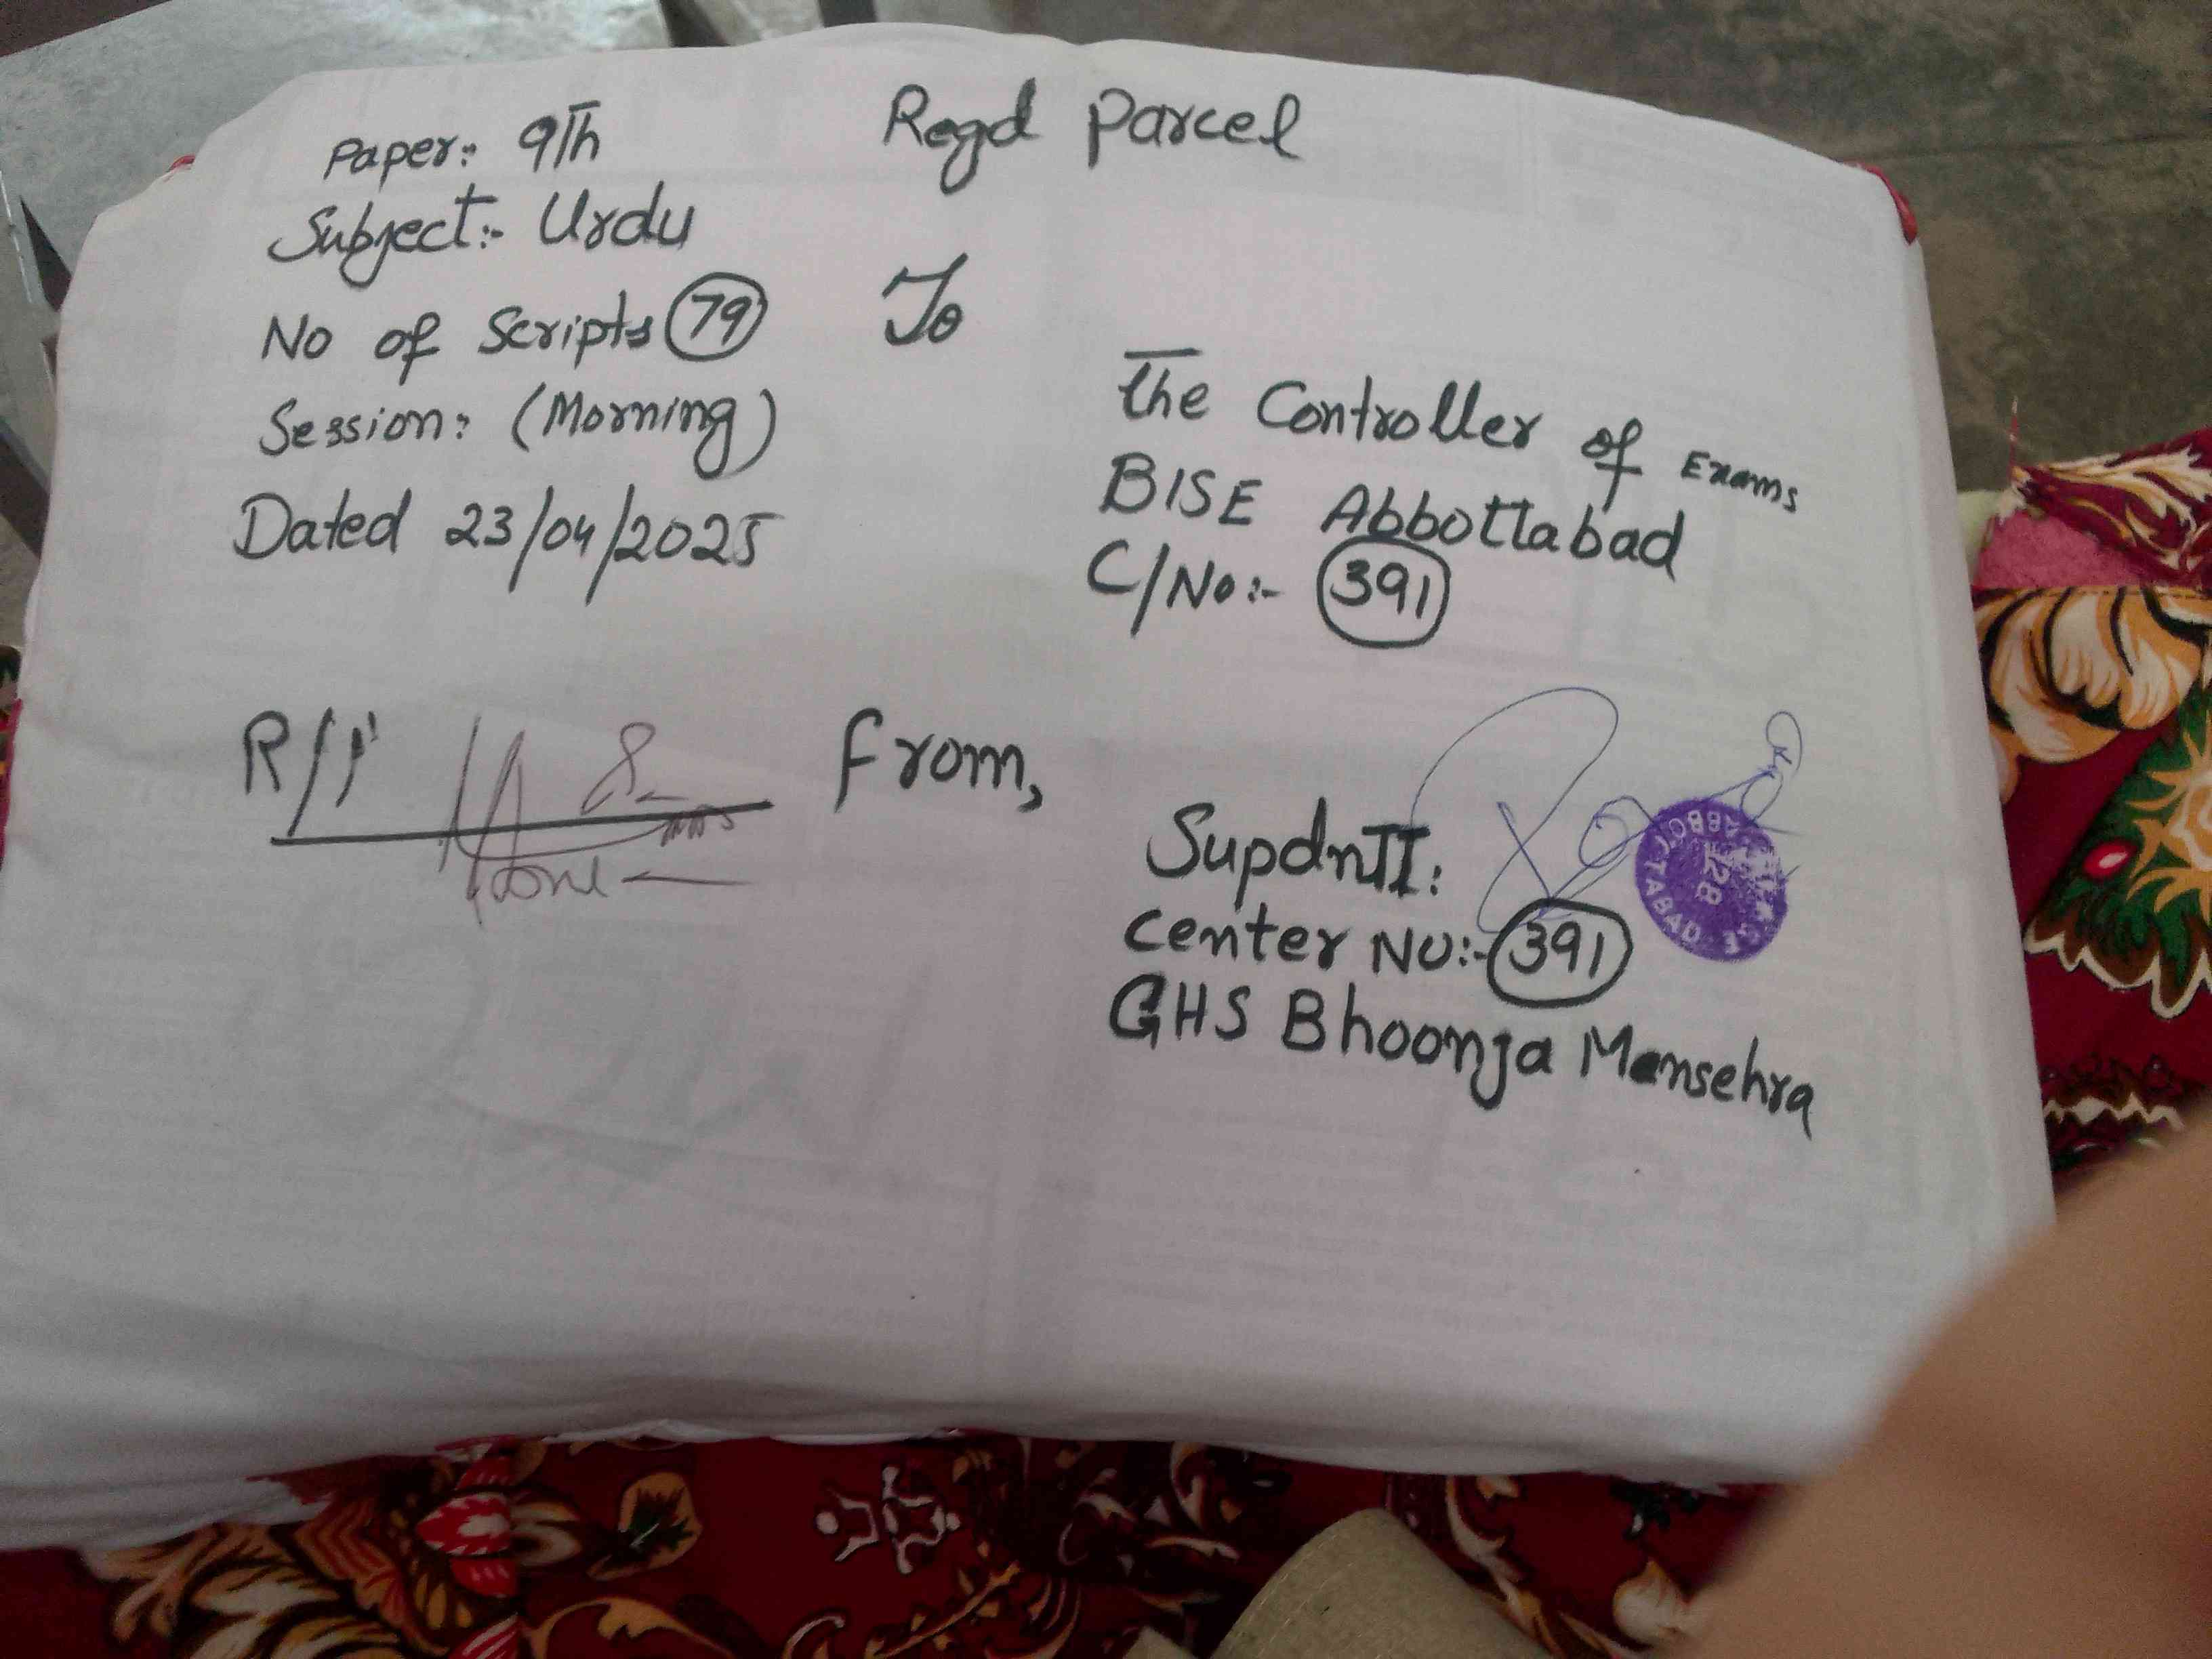 Regd Parcel
Paper:- 9Th
Subject:- Urdu
No of Scripts 79
Session: (Morning)
Dated 23/04/2025
To
The Controller of Exams
BISE Abbottabad
C/No:- 391
R/I
From,
SupdntI:
Center No:- 391
GHS Bhoonja Mansehra
228
ABBOTTABAD